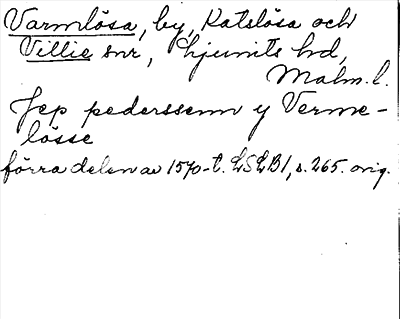 Varmlösa, by, Katslösa och
Villie snr, Ljunits hd,
Malm. l.
Jep pederssenn y Verme-
lösse
förra delen av 1570-t. LSLB1, s. 265. orig.